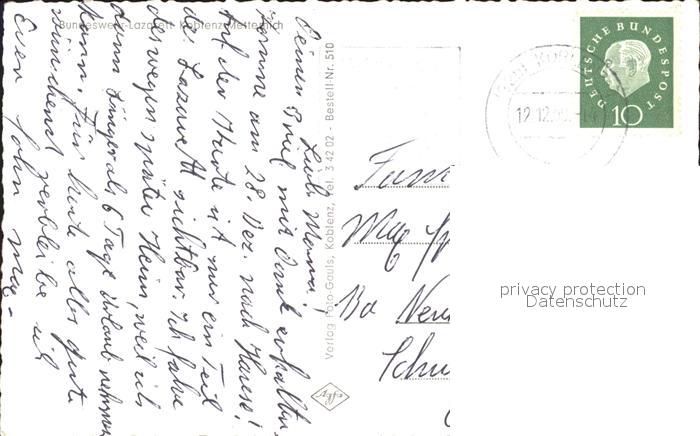 Bundeswehr-Lazarett Koblenz-Metternich
Liebe Mama!
Deinen Brief mit Dank erhalten,
komme am 28. Dez. nach Hause!
Auf der Karte ist nur ein Teil
des Lazarett sichtbar. Ich fahre
deswegen später Heim, weil ich
dann länger als 6 Tage Urlaub nehmen
kann. Für heute alles gute
wünschend verbleibe ich
Euer Sohn
Verlag Foto-Gauls, Koblenz, Tel. 3 42 02 - Bestell-Nr. 510
Fam
Bad Neu
Schu
12.12.
DEUTSCHE BUNDESPOST
10
privacy protection
Datenschutz